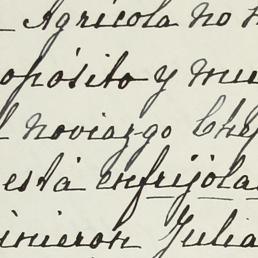 Agrícola no
opósito y mu
noviazgo Chep
está enfrijola
inieron Julia